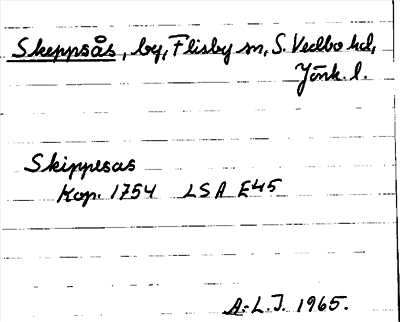 Skeppsås, by, Flisby sn, S. Vedbo hd,
Jönk. l.
Skippesas
Kop. 1754 LSA E45
A.-L.J. 1965.